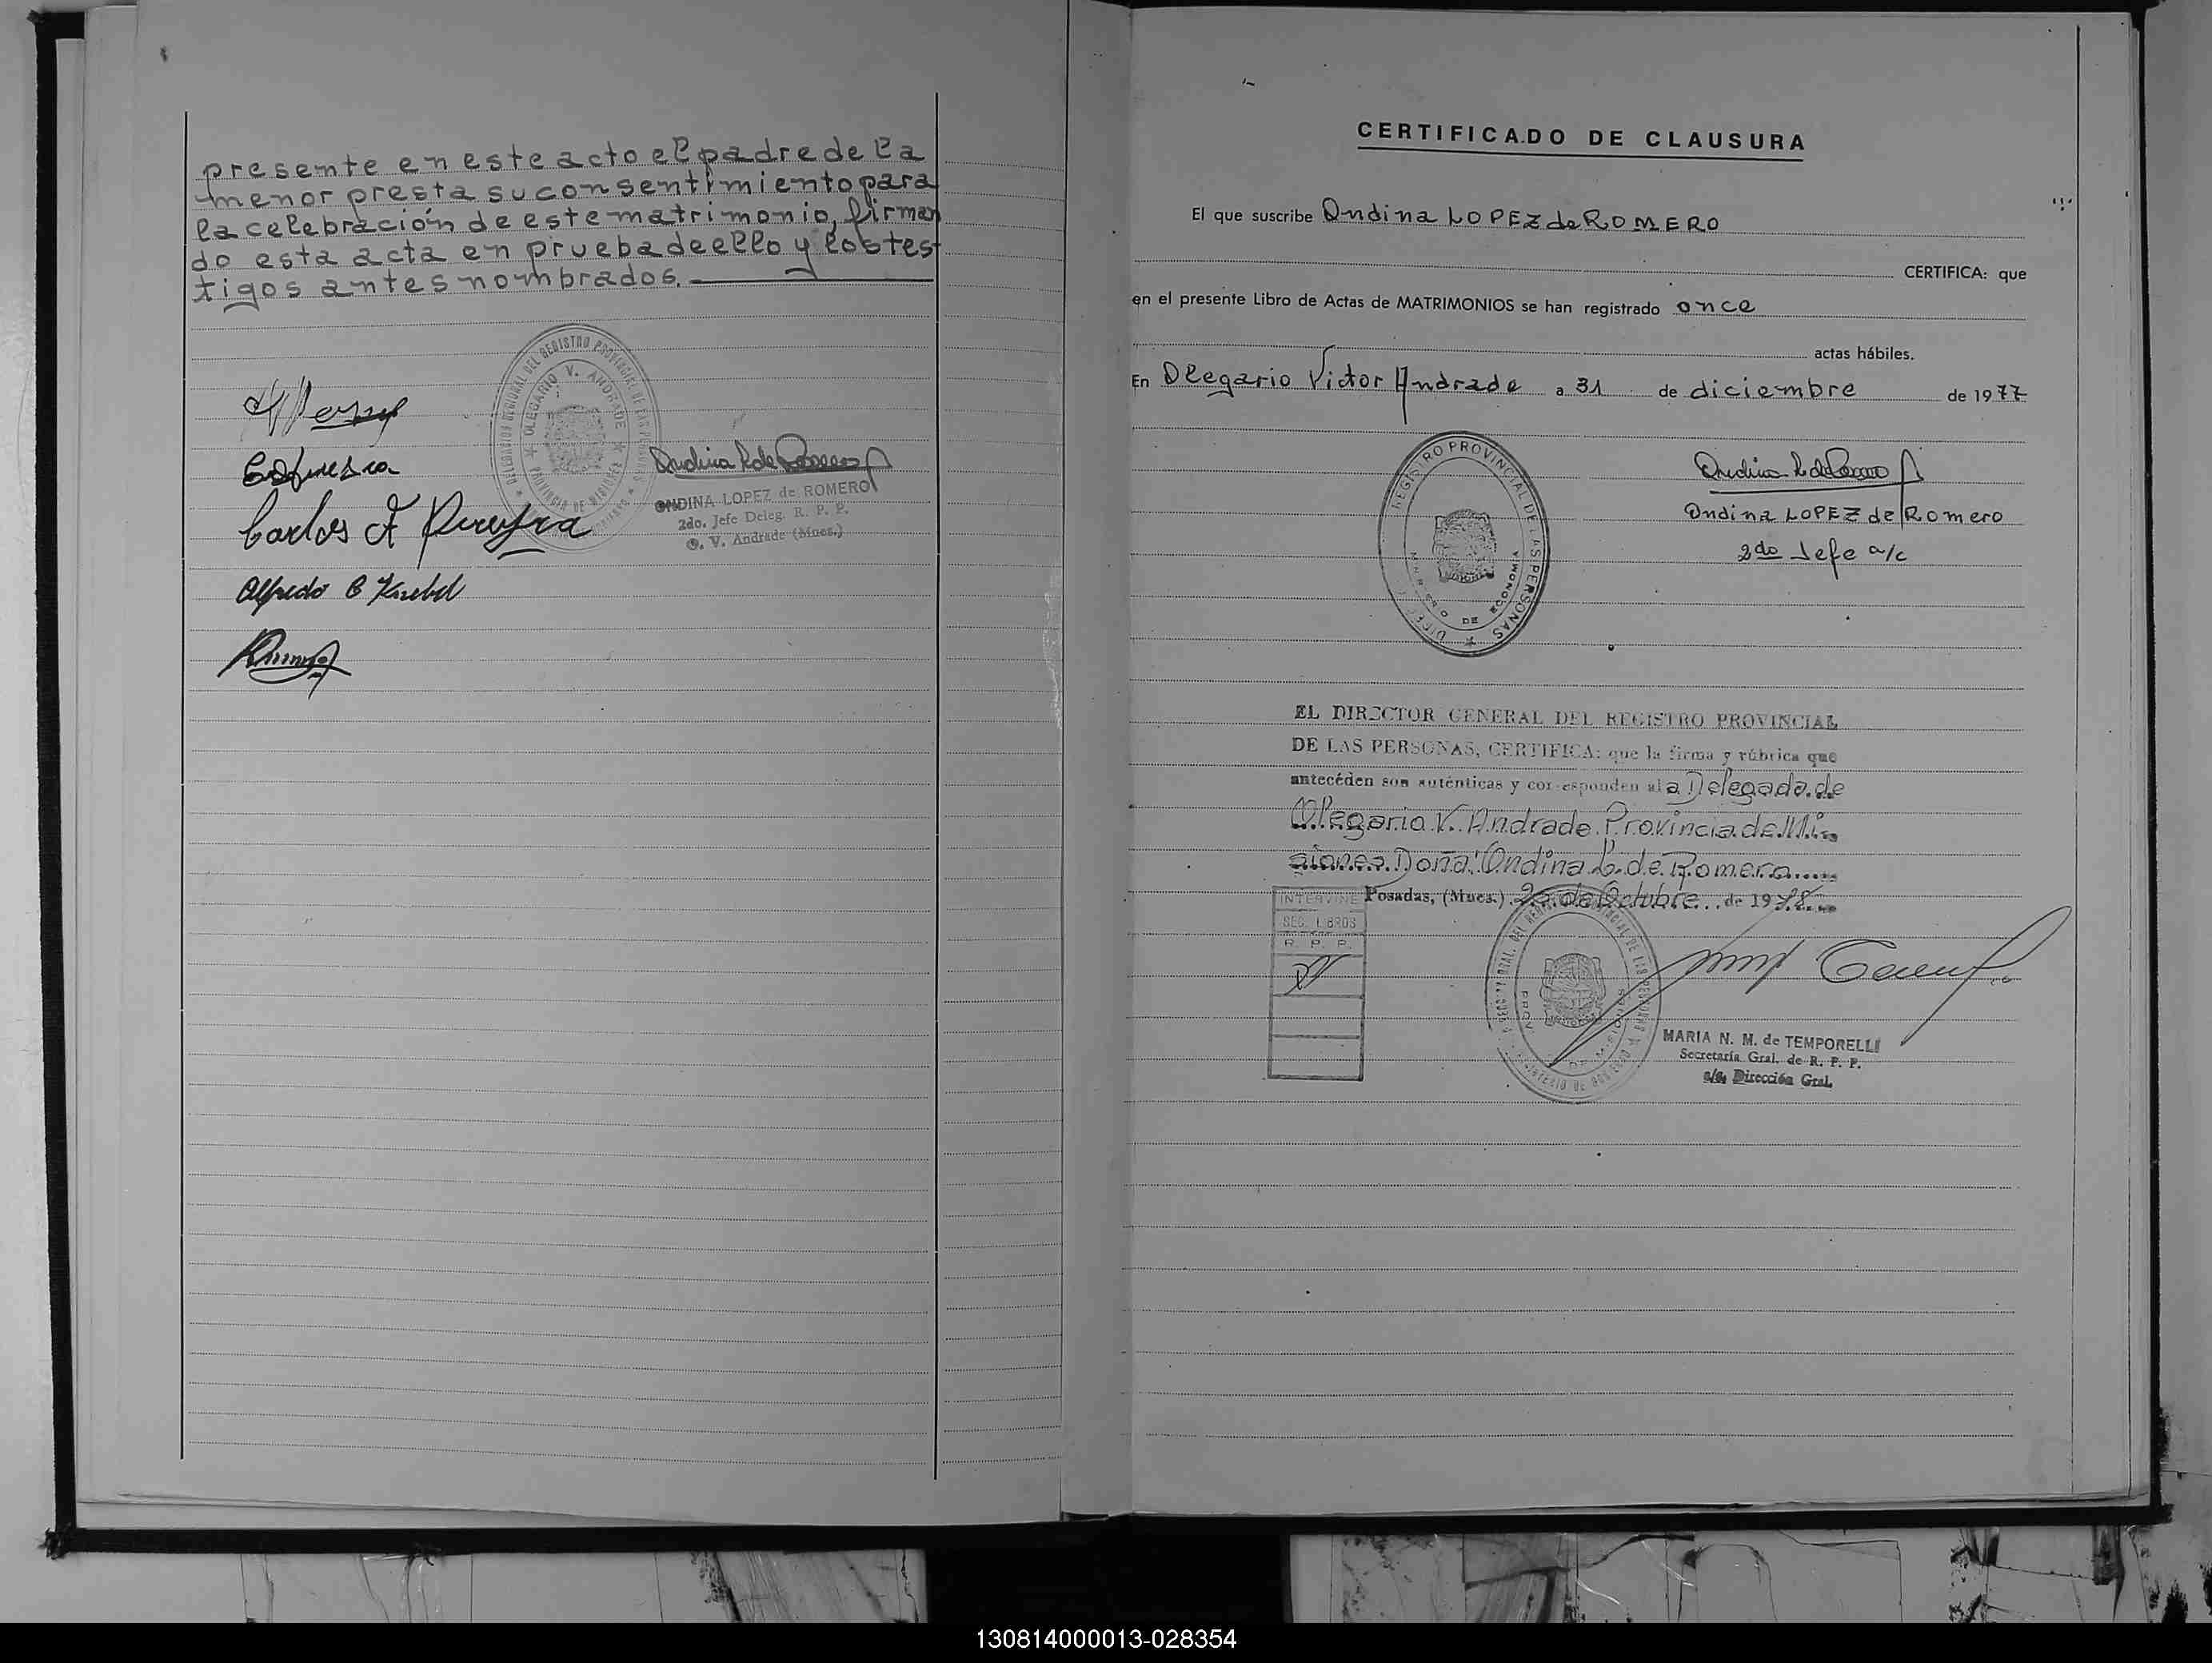 presente en este acto el padre de la
menor presta su consentimiento para
la celebración de este matrimonio, firman
do esta acta en prueba de ello y los tes
tigos antes nombrados.
DELEGACION REGIONAL DEL REGISTRO PROVINCIAL DE LAS PERSONAS
OLEGARIO V. ANDRADE
PROVINCIA DE MISIONES
Carlos A Pereyra
Alfredo B Knebel
Ondina L de Romero
ONDINA LOPEZ de ROMERO
2do. Jefe Deleg. R. P. P.
O. V. Andrade (Mnes.)
CERTIFICADO DE CLAUSURA
El que suscribe Ondina LOPEZ de ROMERO
CERTIFICA: que
en el presente Libro de Actas de MATRIMONIOS se han registrado once
actas hábiles.
En Olegario Victor Andrade a 31 de diciembre de 1977
REGISTRO PROVINCIAL DE LAS PERSONAS
DE ECONOMIA
Ondina L de Romero
Ondina LOPEZ de Romero
2do Jefe a/c
EL DIRECTOR GENERAL DEL REGISTRO PROVINCIAL
DE LAS PERSONAS, CERTIFICA: que la firma y rúbrica que
antecéden son auténticas y corresponden al a Delegada de
Olegario V. Andrade Provincia de Mi
siones Doña: Ondina L. de Romero
Posadas, (Mnes.) 20 de Octubre de 1978
INTERVINE
SEC. LIBROS
R. P. P.
MARIA N. M. de TEMPORELLI
Secretaría Gral. de R. P. P.
a/c. Dirección Gral.
130814000013-028354